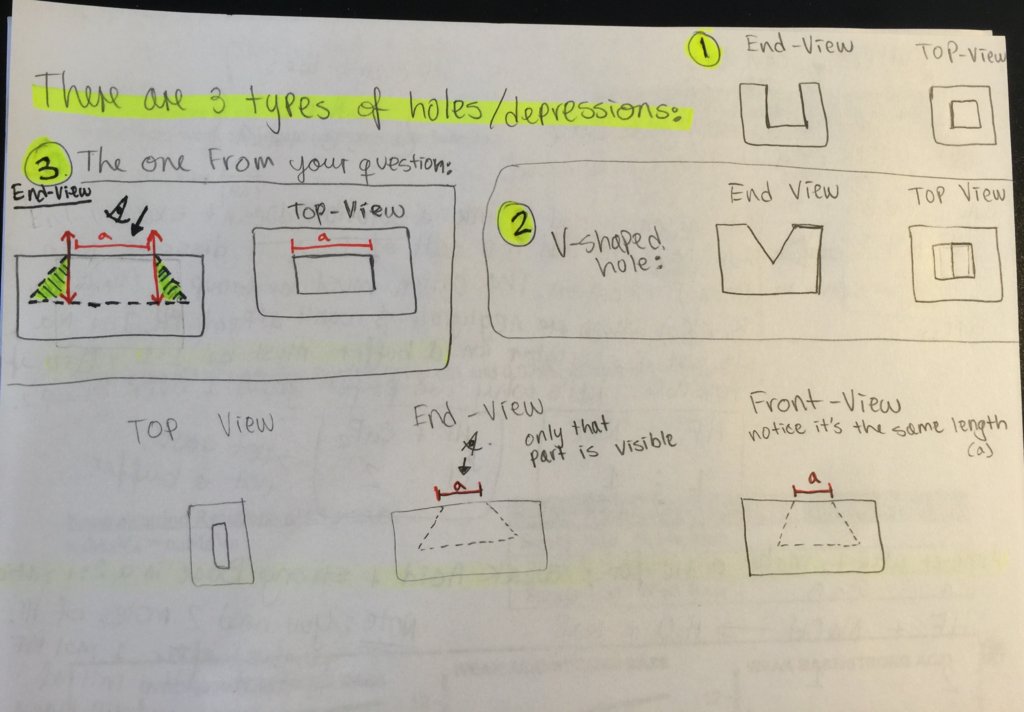 There are 3 types of holes/depressions:
1 End-View TOP-View
3 The one From your question:
End-View
a
TOP-View
a
2 V-shaped
hole:
End View Top View
TOP View
End-View
only that
part is visible
a
Front-View
notice it's the same length
(a)
a